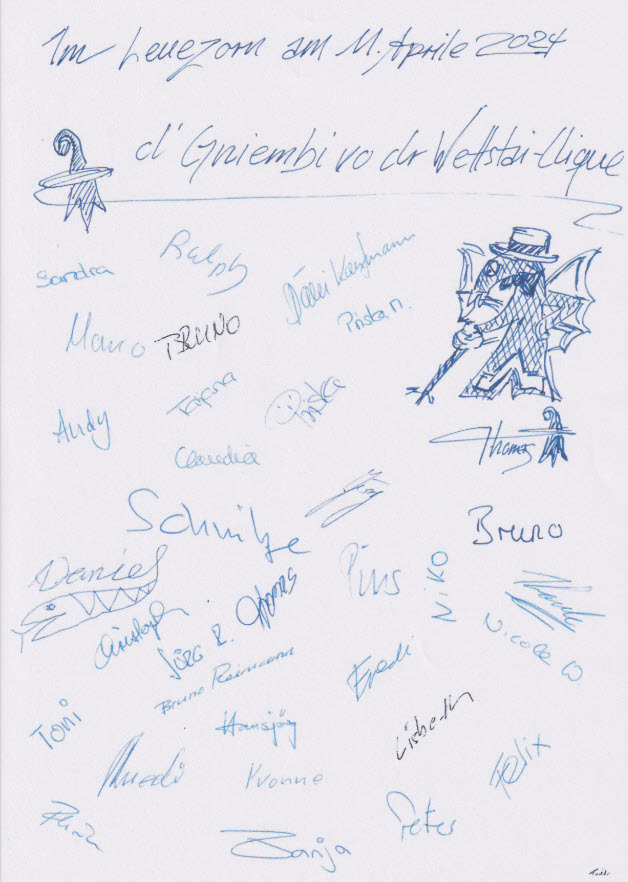 Im Leuezorn am 11. Aprile 2024
d'Gniembi vo dr Wettstai-Clique
Sandra
Ralph
Dani Kaufmann
Priska n.
Mario
BRUNO
Andy
Tatjana
Priska
Claudia
Thomas
Schnitze
Bruno
Daniel
Pius
Niko
Christoph
Jörg R.
Thomas
Nicole W.
Bruno Reimann
Fredi
Toni
Hansjörg
Lisbeth
Ruedi
Yvonne
Felix
Peter
Tanja